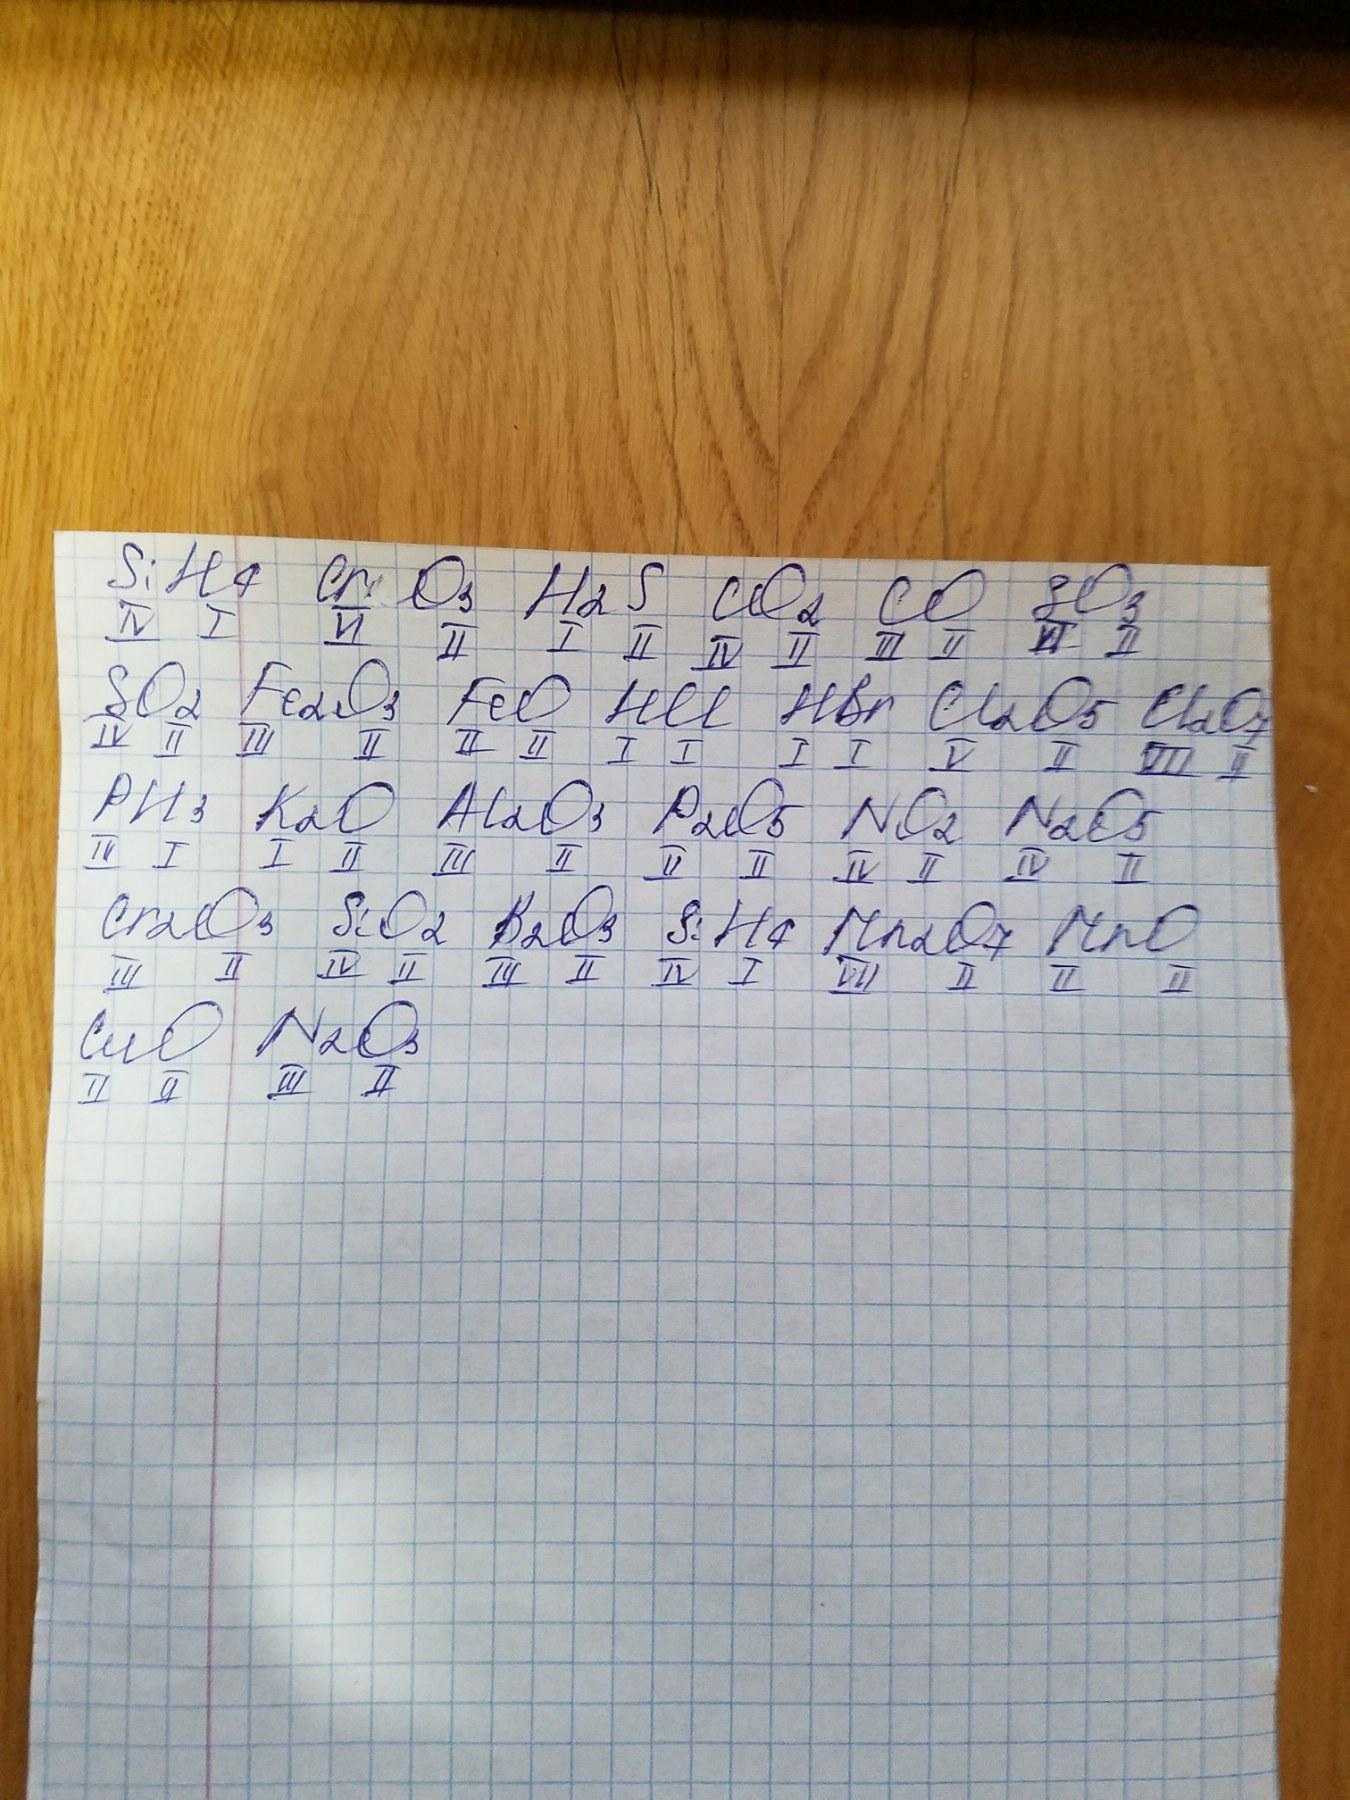 SiH4 CrO3 H2S CO2 CO SO3
IV I VI II I II IV II III II VI II
SO2 Fe2O3 FeO HCl HBr Cl2O5 Cl2O7
IV II III II II II I I I I V II VII II
PH3 K2O Al2O3 P2O5 NO2 N2O5
III I I II III II II II IV II IV II
Cr2O3 SiO2 B2O3 SiH4 Mn2O7 MnO
III II IV II III II IV I VII II II II
CuO N2O3
II II III II